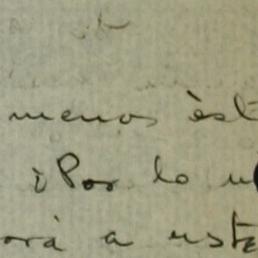 menos èst
¡Por lo
orà a uste